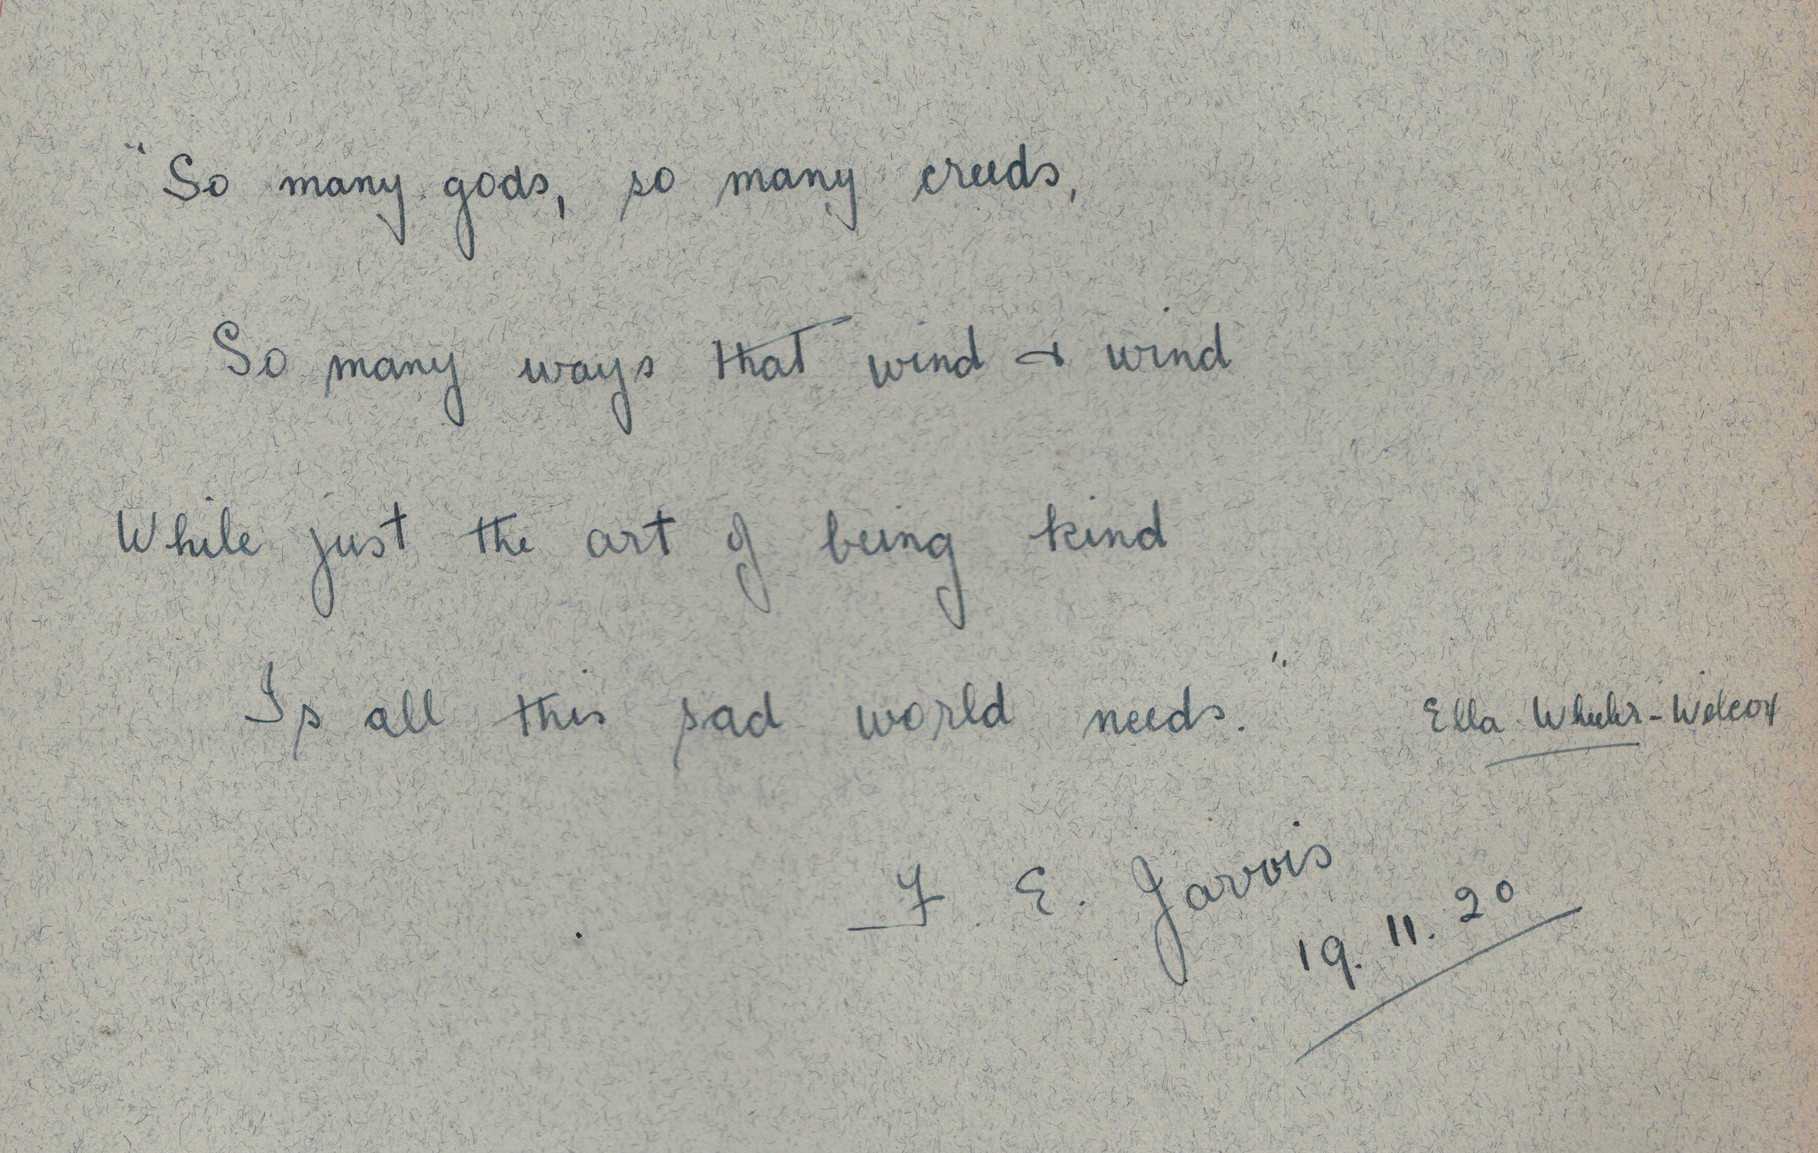 "So many gods, so many creeds,
So many ways that wind & wind
While just the art of being kind
Is all this sad world needs."
Ella Wheeler-Wilcox
F. E. Jarvis
19.11.20